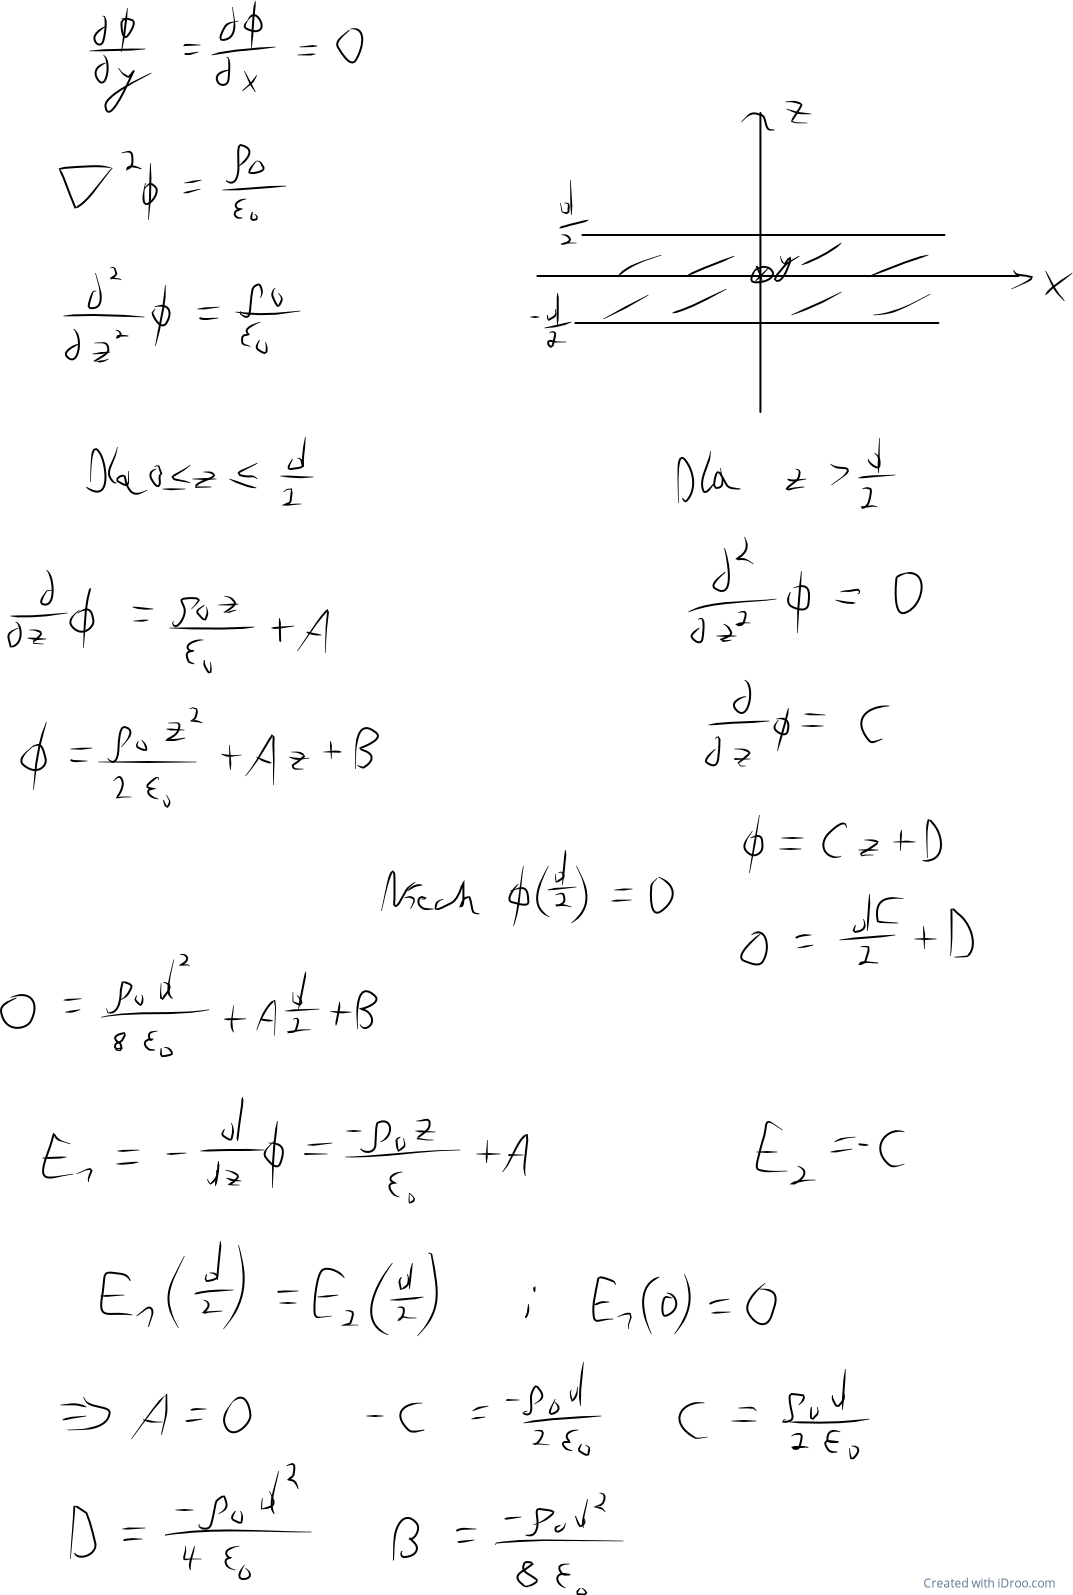 ∂ϕ/∂y = ∂ϕ/∂x = 0
∇²ϕ = ρ₀/ε₀
∂²/∂z² ϕ = ρ₀/ε₀
z
d/2
y
x
-d/2
Dla 0 ≤ z ≤ d/2
∂/∂z ϕ = ρ₀z/ε₀ + A
ϕ = ρ₀z²/2ε₀ + Az + B
Dla z > d/2
∂²/∂z² ϕ = 0
∂/∂z ϕ = C
ϕ = Cz + D
Niech ϕ(d/2) = 0
0 = dC/2 + D
0 = ρ₀d²/8ε₀ + A d/2 + B
E₁ = -d/dz ϕ = -ρ₀z/ε₀ + A
E₂ = -C
E₁(d/2) = E₂(d/2) i E₁(0) = 0
⇒ A = 0 -C = -ρ₀d/2ε₀ C = ρ₀d/2ε₀
D = -ρ₀d²/4ε₀ B = -ρ₀d²/8ε₀
Created with iDroo.com